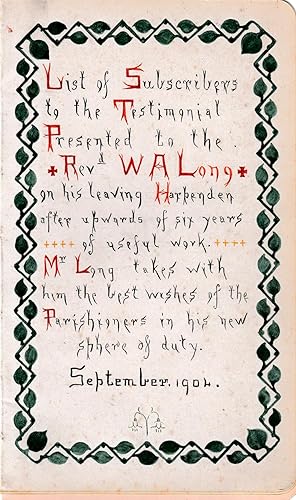 List of Subscribers
to the Testimonial
Presented to the
✠ Revd W A Long ✠
on his leaving Harpenden
after upwards of six years
++++ of useful work. ++++
Mr Long takes with
him the best wishes of the
Parishioners in his new
sphere of duty.
September. 1902.